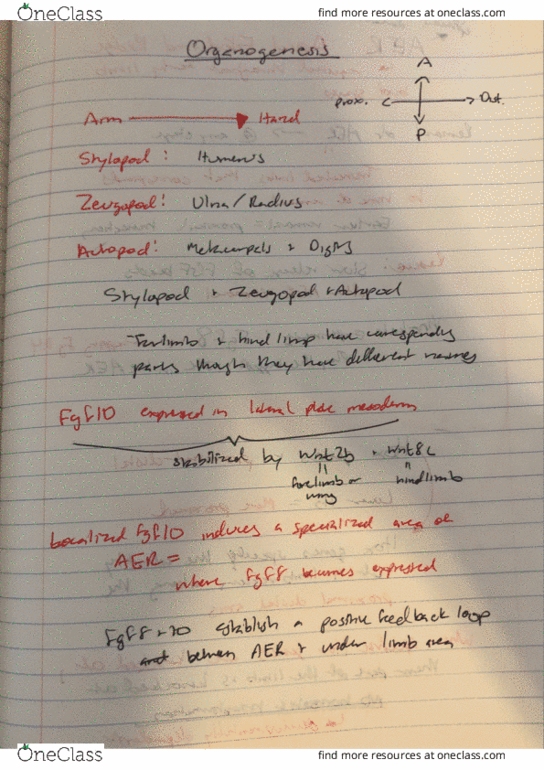 OneClass
find more resources at oneclass.com
Organogenesis
A
prox.
Dist.
P
Arm
Hand
Stylopod : Humerus
Zeugopod : Ulna/Radius
Autopod : Metacarpals + Digits
Stylopod + Zeugopod + Autopod
Forelimb + hind limb have corresponding
parts though they have different names
Fgf10 expressed in lateral plate mesoderm
stabilized by Wnt2b + Wnt8c
forelimb or
hindlimb
wing
Localized Fgf10 induces a specialized area of
AER =
where Fgf8 becomes expressed
Fgf8 + 10 establish a positive feedback loop
between AER + under limb area
OneClass
find more resources at oneclass.com